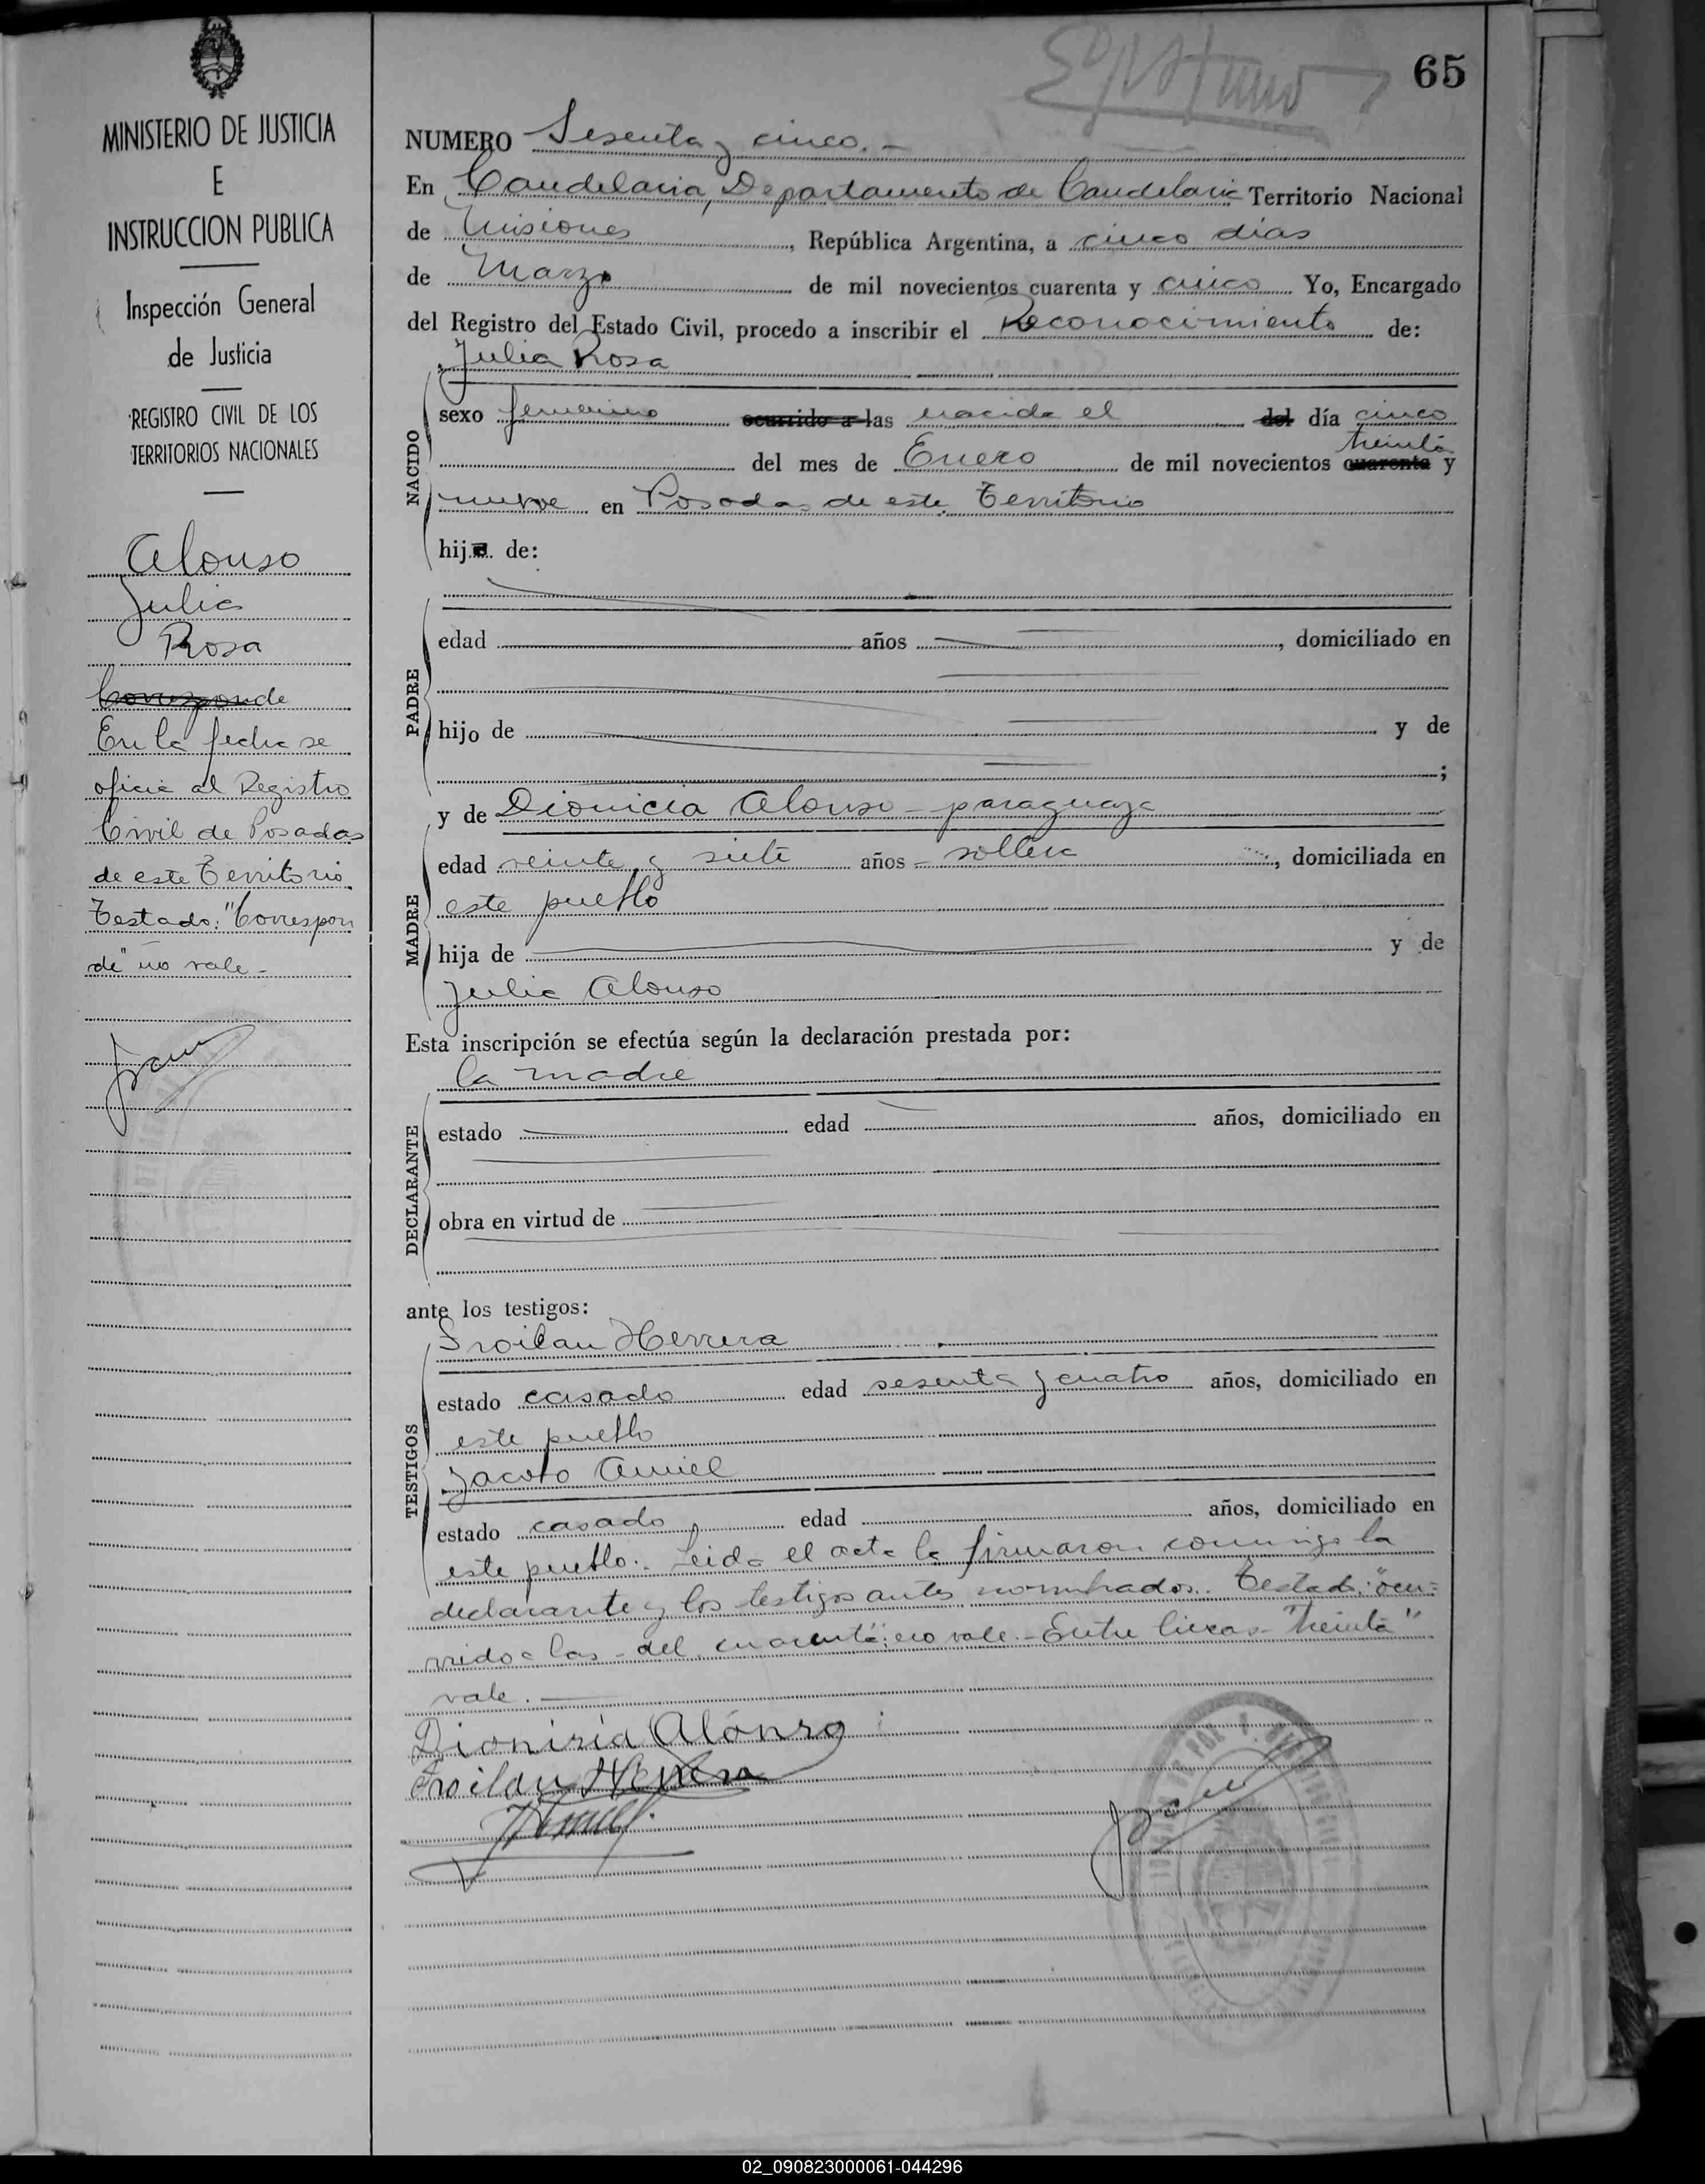 65
MINISTERIO DE JUSTICIA
E
INSTRUCCION PUBLICA
Inspección General
de Justicia
REGISTRO CIVIL DE LOS
TERRITORIOS NACIONALES
Alonso
Julia
Rosa
Corresponde
En la fecha se
oficia al Registro
Civil de Posadas
de este Territorio.
Testado: "Correspon
de" no vale -
NUMERO Sesenta y cinco. -
En Candelaria, Departamento de Candelaria Territorio Nacional
de Misiones, República Argentina, a cinco días
de Marzo de mil novecientos cuarenta y cinco Yo, Encargado
del Registro del Estado Civil, procedo a inscribir el Reconocimiento de:
Julia Rosa
NACIDO
sexo femenino ocurrido a las nacida el del día cinco
treinta
del mes de Enero de mil novecientos cuarenta y
nueve en Posadas de este Territorio
hija de:
PADRE
edad años , domiciliado en
hijo de y de
;
y de Dionicia Alonso - paraguaya
MADRE
edad veinte y siete años - soltera , domiciliada en
este pueblo
hija de y de
Julia Alonso
Esta inscripción se efectúa según la declaración prestada por:
la madre
DECLARANTE
estado edad años, domiciliado en
obra en virtud de
ante los testigos:
Froilan Herrera
TESTIGOS
estado casado edad sesenta y cuatro años, domiciliado en
este pueblo
Jacobo Amiel
estado casado edad años, domiciliado en
este pueblo. Leida el acta la firmaron conmigo la
declarante y los testigos antes nombrados. Testado: "ocu=
rrido a las - del cuarenta": no vale. - Entre lineas - "treinta"
vale. -
Dionisia Alonso
Froilan Herrera
02_090823000061-044296